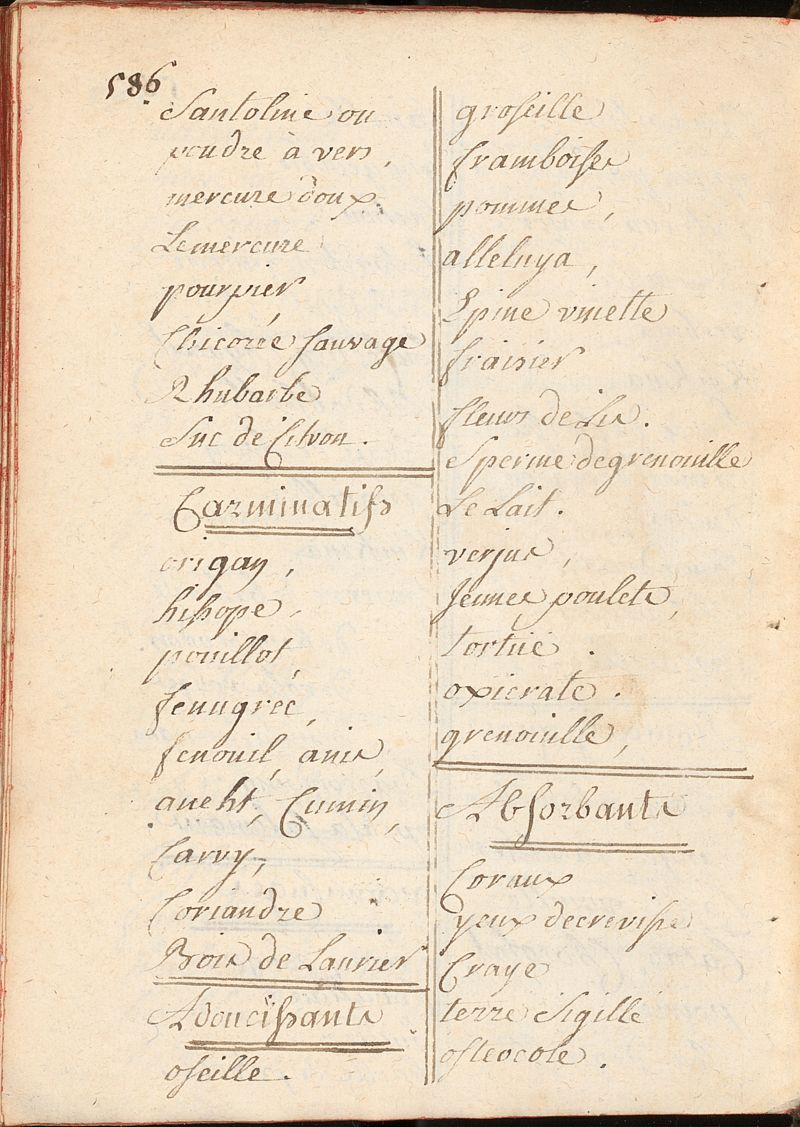 586
Santoline ou
poudre à vers,
mercure doux.
Le mercure
pourpier,
Chicorée sauvage
Rhubarbe
Suc de Citron.
Carminatifs
origan,
hissope,
pouillot,
fenugrec,
fenouil, anis,
aneht, Cumin,
Carvy,
Coriandre
Bois de Laurier
Adoucissants
oseille.
groseille
framboises
pommes,
alleluya,
Epine vinette
fraisier
fleurs de Lis.
Sperme de grenouille
Le Lait.
verjus,
Jeunes poulets,
tortüe.
oxicrate.
grenouille,
Absorbants
Coraux
yeux decrevisse
Craye
terre Sigille
osteocole.